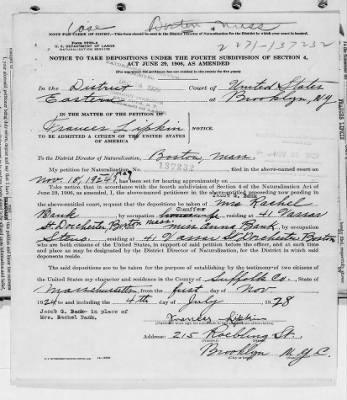 Boston Mass
NOTE FOR CLERK OF COURT.
U. S. DEPARTMENT OF LABOR
NATURALIZATION SERVICE
2271-137232
NOTICE TO TAKE DEPOSITIONS UNDER THE FOURTH SUBDIVISION OF SECTION 4,
ACT JUNE 29, 1906, AS AMENDED
In the District Court of United States
Eastern at Brooklyn, N.Y
IN THE MATTER OF THE PETITION OF
Frances Lipkin NOTICE.
TO BE ADMITTED A CITIZEN OF THE UNITED
STATES OF AMERICA
To the District Director of Naturalization, Boston, Mass.
My petition for Naturalization No. 137232 filed in the above-named court on
Nov. 18, 1929, has been set for hearing approximately on
Take notice that in accordance with the fourth subdivision of section 4 of the Naturalization Act of
June 29, 1906, as amended, I, the above-named petitioner in the above-entitled proceeding now pending in
the above-entitled court, request that the depositions be taken of Mrs Rachel
Bank, by occupation housewife, residing at 41 Nassau
St. Dorchester, Boston Mass. Miss Anna Bank, by occupation
Steno., residing at 41 Nassau St. Dorchester, Boston
who are both citizens of the United States, in support of said petition before the officer, and at such time
and place as may be designated by the District Director of Naturalization, for the District in which said
deponents reside.
The said depositions are to be taken for the purpose of establishing by the testimony of two citizens of
the United States my character and residence in the County of Suffolk Co., State of
Massachusetts, from the first day of Nov
1924 to and including the 4th day of July 1928
Jacob G. Bank in place of
Mrs. Rachel Bank.
Frances Lipkin
Address: 215 Roebling St.
Brooklyn N.Y.C.